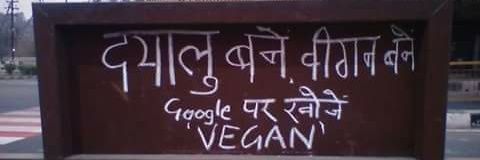 दयालु बनें, वीगन बनें
Google पर खोजें
'VEGAN'